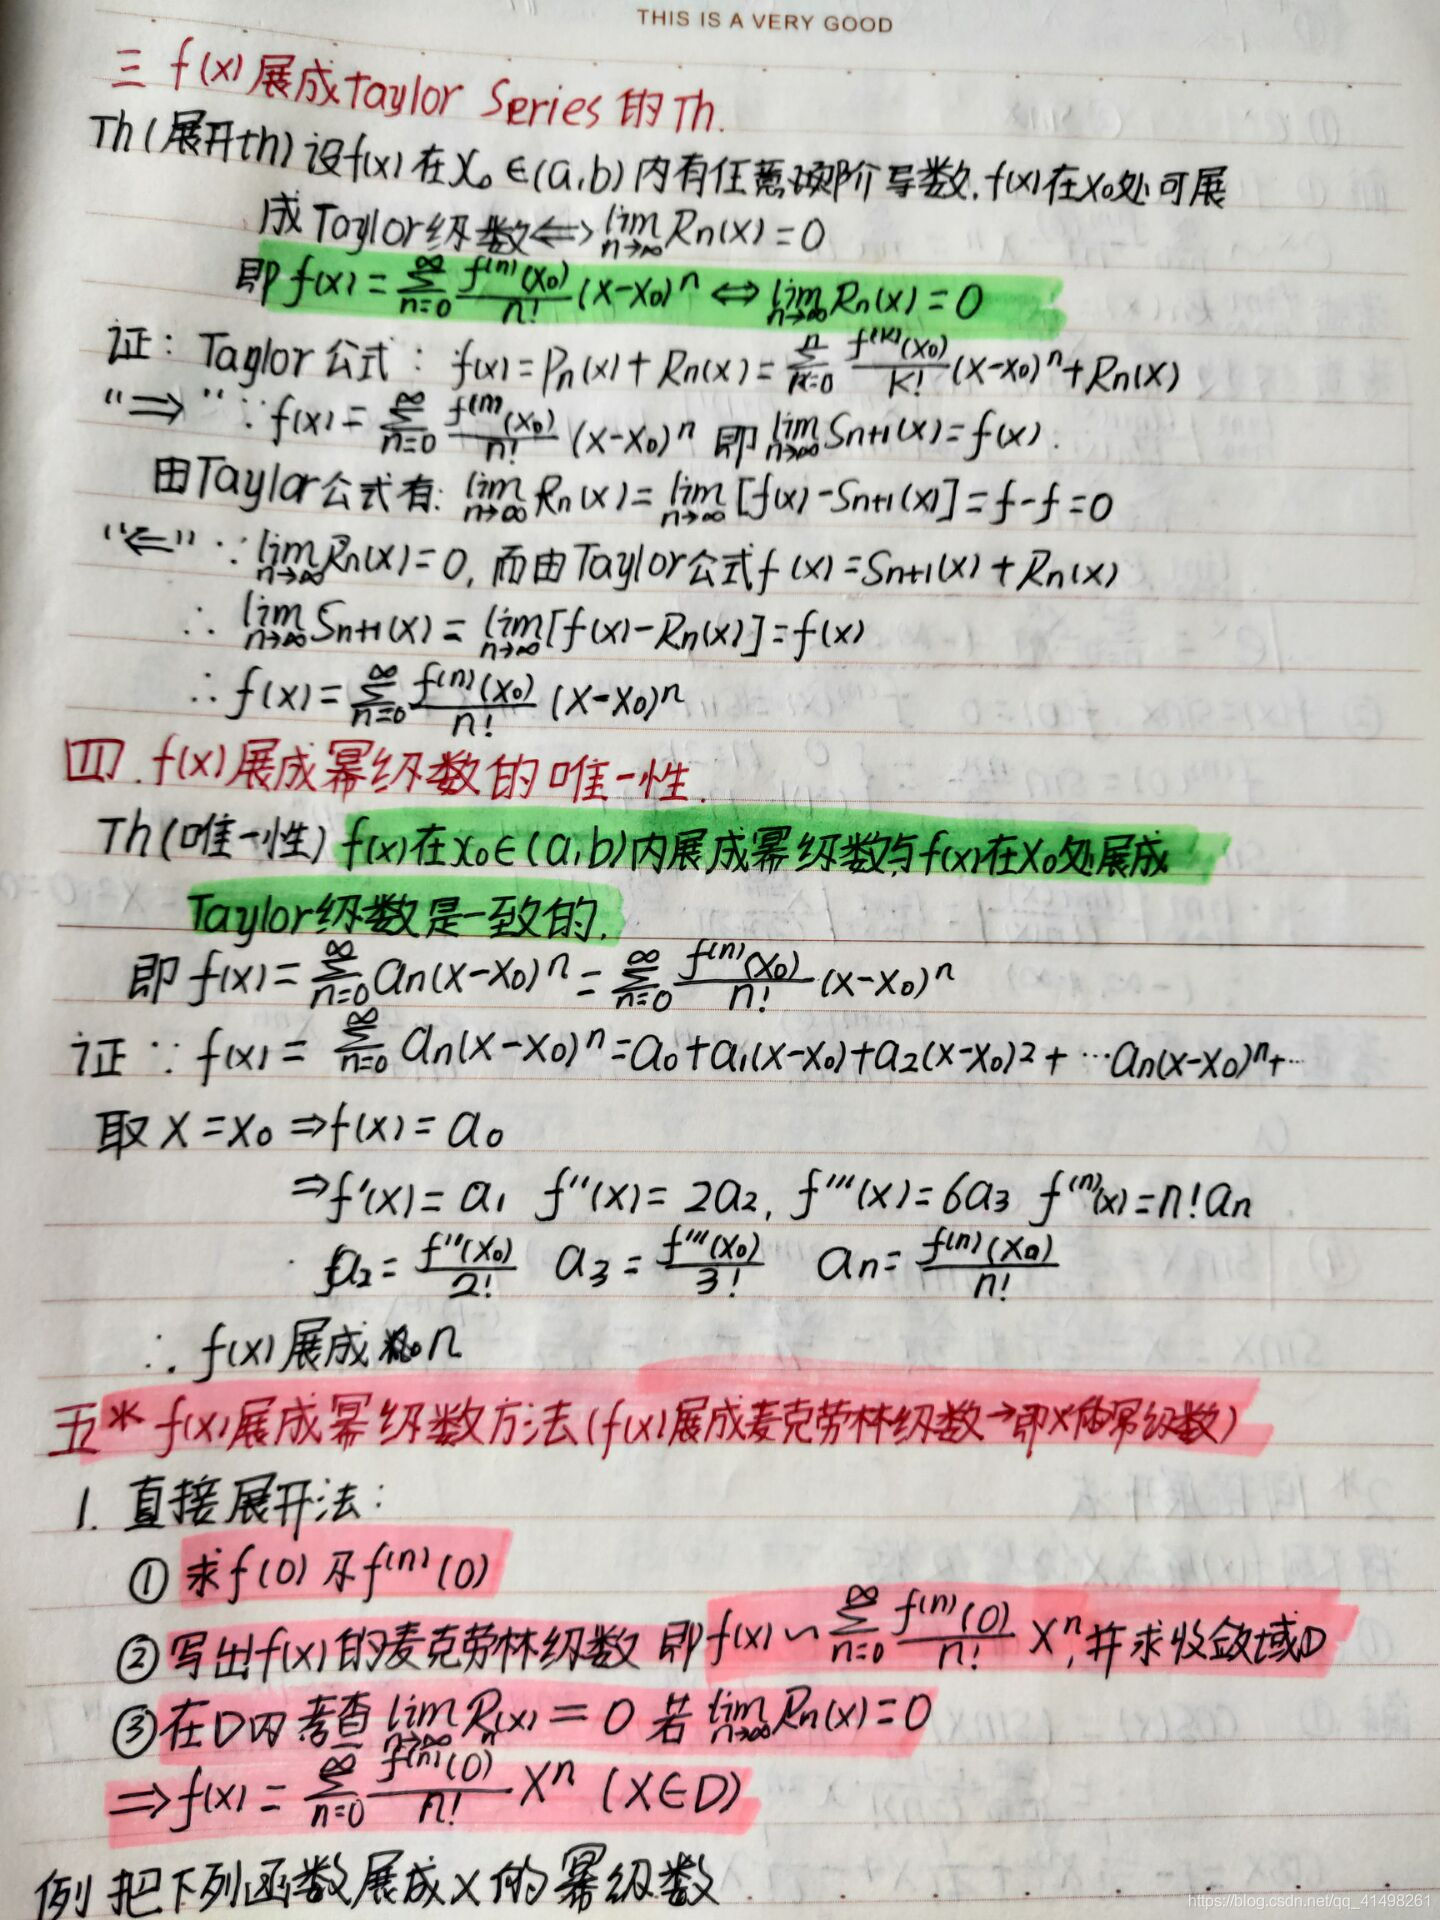 THIS IS A VERY GOOD
三 f(x)展成Taylor Series的Th.
Th(展开th)设f(x)在x₀∈(a,b)内有任意阶导数,f(x)在x₀处可展
成Taylor级数⟺lim n→∞ Rn(x)=0
即 f(x)=∑n=0 ∞ f⁽ⁿ⁾(x₀)/n! (x-x₀)ⁿ ⟺ lim n→∞ Rn(x)=0
证: Taylor公式: f(x)=Pn(x)+Rn(x)=∑k=0 n f⁽ᵏ⁾(x₀)/k! (x-x₀)ⁿ+Rn(x)
“⇒” ∵f(x)=∑n=0 ∞ f⁽ⁿ⁾(x₀)/n! (x-x₀)ⁿ 即 lim n→∞ Sn+1(x)=f(x).
由Taylor公式有: lim n→∞ Rn(x)=lim n→∞ [f(x)-Sn+1(x)]=f-f=0
“⇐” ∵lim n→∞ Rn(x)=0,而由Taylor公式f(x)=Sn+1(x)+Rn(x)
∴ lim n→∞ Sn+1(x)=lim n→∞ [f(x)-Rn(x)]=f(x)
∴ f(x)=∑n=0 ∞ f⁽ⁿ⁾(x₀)/n! (x-x₀)ⁿ
四.f(x)展成幂级数的唯一性.
Th(唯一性) f(x)在x₀∈(a,b)内展成幂级数与f(x)在x₀处展成
Taylor级数是一致的.
即 f(x)=∑n=0 ∞ an(x-x₀)ⁿ=∑n=0 ∞ f⁽ⁿ⁾(x₀)/n! (x-x₀)ⁿ
证 ∵ f(x)=∑n=0 ∞ an(x-x₀)ⁿ=a₀+a₁(x-x₀)+a₂(x-x₀)²+…an(x-x₀)ⁿ+…
取 x=x₀⇒f(x)=a₀
⇒f'(x)=a₁ f''(x)=2a₂, f'''(x)=6a₃ f⁽ⁿ⁾(x)=n!an
a₂=f''(x₀)/2! a₃=f'''(x₀)/3! an=f⁽ⁿ⁾(x₀)/n!
∴ f(x)展成 n
五* f(x)展成幂级数方法(f(x)展成麦克劳林级数→即x的幂级数)
1. 直接展开法:
① 求f(0)及f⁽ⁿ⁾(0)
② 写出f(x)的麦克劳林级数 即f(x)∽∑n=0 ∞ f⁽ⁿ⁾(0)/n! xⁿ,并求收敛域D
③ 在D内考查 lim n→∞ Rn(x)=0 若 lim n→∞ Rn(x)=0
⇒f(x)=∑n=0 ∞ f⁽ⁿ⁾(0)/n! xⁿ (x∈D)
例 把下列函数展成x的幂级数
https://blog.csdn.net/qq_41498261